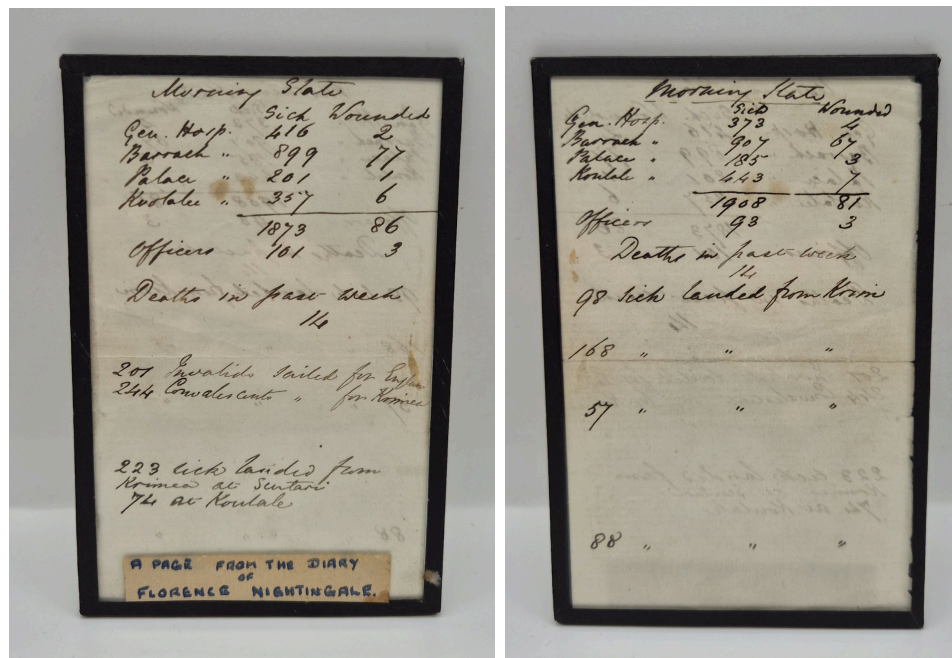 Morning State
Sick Wounded
Gen. Hosp. 416 2
Barrack " 899 77
Palace " 201 1
Koulalee " 357 6
1873 86
Officers 101 3
Deaths in past week
14
201 Invalids sailed for England
244 Convalescents " for Krimea
223 sick landed from
Krimea at Scutari
74 at Koulale
A PAGE FROM THE DIARY
OF
FLORENCE NIGHTINGALE.
Morning State
Sick Wounded
Gen. Hosp. 373 4
Barrack " 907 67
Palace " 185 3
Koulale " 443 7
1908 81
Officers 93 3
Deaths in past week
14
98 sick landed from Krim
168 " " "
57 " " "
88 " " "